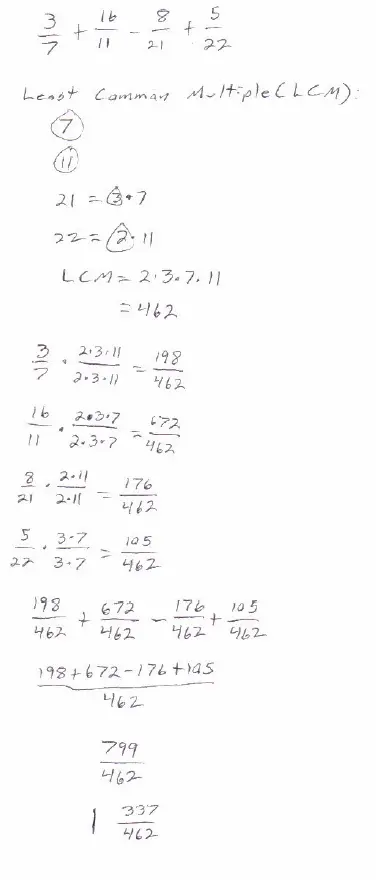 3/7 + 16/11 - 8/21 + 5/22
Least Common Multiple (LCM):
7
11
21 = 3·7
22 = 2·11
LCM = 2·3·7·11
= 462
3/7 · 2·3·11/2·3·11 = 198/462
16/11 · 2·3·7/2·3·7 = 672/462
8/21 · 2·11/2·11 = 176/462
5/22 · 3·7/3·7 = 105/462
198/462 + 672/462 - 176/462 + 105/462
198+672-176+105/462
799/462
1 337/462